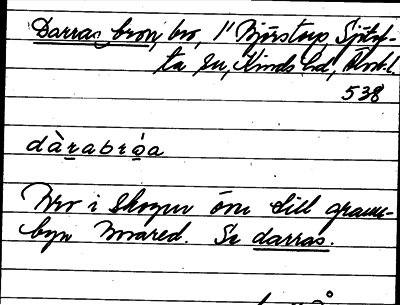 Darras bron, bro, i Björstorp, Sjötof-
ta sn, Kinds hd, Älvsb.l.
538
dàrabróa
Bro i skogen öve till granne-
byn Moared. Se darras.